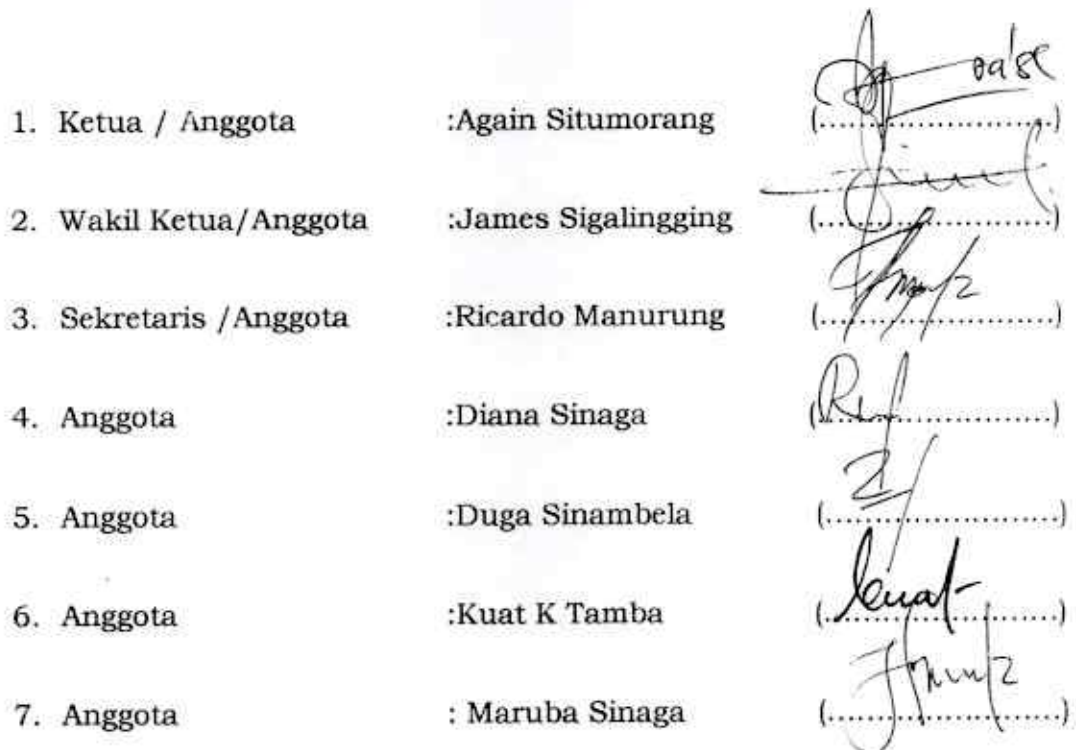 1. Ketua / Anggota :Again Situmorang (......................)
2. Wakil Ketua/Anggota :James Sigalingging (......................)
3. Sekretaris /Anggota :Ricardo Manurung (......................)
4. Anggota :Diana Sinaga (......................)
5. Anggota :Duga Sinambela (......................)
6. Anggota :Kuat K Tamba (......................)
Kuat
7. Anggota : Maruba Sinaga (......................)